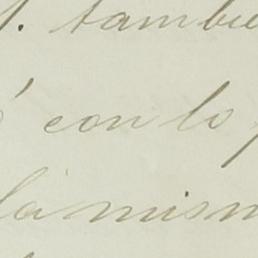 tambie
con lo
la mism